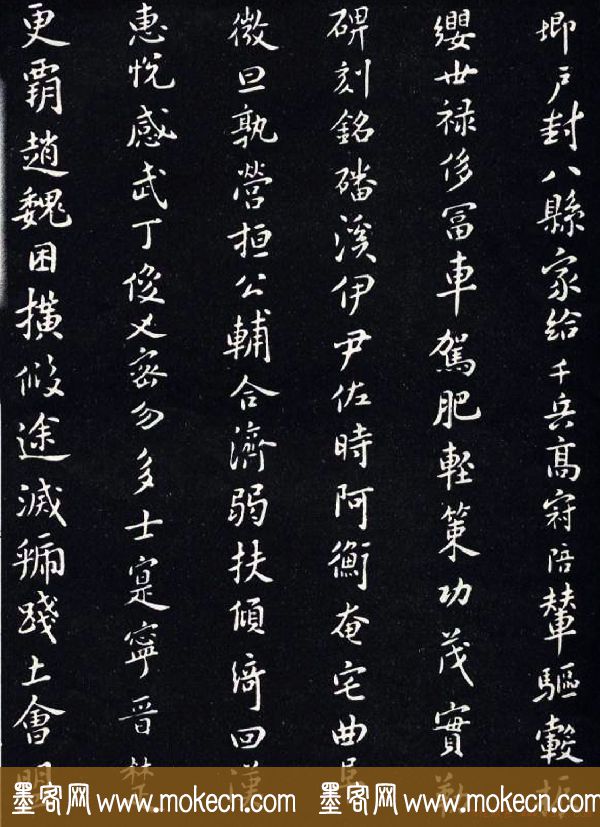 㘭戶封八縣家給千兵高冠陪輦驅轂振
纓世祿侈冨車駕肥輕策功茂實勒
碑刻銘磻溪伊尹佐時阿衡奄宅曲阜
微旦孰營桓公輔合濟弱扶傾綺回漢
惠悅感武丁俊乂密勿多士寔寧晉楚
更霸趙魏困橫假途滅虢踐土會盟
墨客网 www.mokecn.com 墨客网 www.mokecn.com